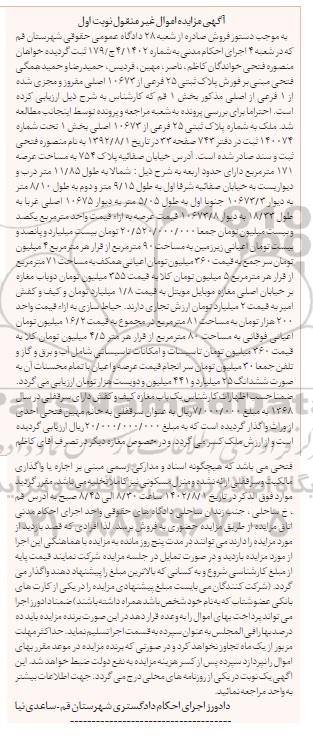 آگهی مزایده اموال غیر منقول نوبت اول
به موجب دستور فروش صادره از شعبه ۲۸ دادگاه عمومی حقوقی شهرستان قم
که در شعبه ۴ اجرای احکام مدنی به شماره ۱۷۹/ج/۴/۱۴۰۲ ثبت گردیده خواهان
منصوره فتحی خواندگان کاظم، ناصر، مهین، فردیس، حمیدرضا و حمید همگی
فتحی مبنی بر فروش پلاک ثبتی ۲۵ فرعی از ۱۰۶۷۳ اصلی مفروز و مجزی شده
از ۱ فرعی از اصلی مذکور بخش ۱ قم که کارشناس به شرح ذیل ارزیابی کرده
است. احتراما برای بررسی پرونده به شعبه مراجعه و پرونده توسط اینجانب مطالعه
شد. ملک به شماره پلاک ثبتی ۲۵ فرعی از ۱۰۶۷۳ اصلی بخش ۱ تحت شماره
۱۴۰۰۷۴ ثبت در دفتر ۷۴۳ صفحه ۳۳ در تاریخ ۱۳۹۲/۸/۱ به نام منصوره فتحی
ثبت و سند صادر شده است. آدرس خیابان صفائیه پلاک ۷۵۴ به مساحت عرصه
۱۷۱ مترمربع دارای حدود اربعه به شرح ذیل: شمالا به طول ۱۱/۸۵ متر درب و
دیواریست به خیابان صفائیه شرقا اول به طول ۹/۱۵ متر و دوم به طول ۸/۱۰ متر
به دیوار ۱۰۶۷۳/۳ جنوبا اول به طول ۵/۰۵ متر به دیوار ۱۰۶۷۵ اصلی غربا به
طول ۱۸/۳۳ به دیوار ۱۰۶۷۳/۸ قیمت عرصه به ازاء قیمت واحد مترمربع یکصد
و بیست میلیون تومان جمعا ۲۰/۵۲۰/۰۰۰/۰۰۰ تومان بیست میلیارد و پانصد و
بیست تومان اعیانی زیرزمین به مساحت ۹۰ مترمربع از قرار هر مترمربع ۴ میلیون
تومان سر جمع به قیمت ۳۶۰ میلیون تومان اعیانی همکف به مساحت ۷۱ مترمربع
از قرار هر مترمربع ۵ میلیون تومان کلا به قیمت ۳۵۵ میلیون تومان دوباب مغازه
بر خیابان اصلی مغازه موبایل مویتل به قیمت ۱/۸ میلیارد تومان و کیف و کفش
امیر به قیمت ۲ میلیارد تومان ارزش تجاری دارند. حیاط سازی به ازاء قیمت واحد
۲۰۰ هزار تومان به مساحت ۸۱ مترمربع در مجموع به قیمت ۱۶/۲ میلیون تومان
اعیانی فوقانی به مساحت ۸۰ مترمربع از قرار هر متر ۴/۵ میلیون تومان کلا به
قیمت ۳۶۰ میلیون تومان تاسیسات و امکانات تاسیساتی شامل آب و برق و گاز و
تلفن جمعا ۳۰ میلیون تومان سر انجام قیمت عرصه و اعیان با تمام محسنات آن به
صورت ششدانگ ۲۵ میلیارد و ۴۴۱ میلیون و دویست هزار تومان ارزیابی می گردد.
ضمنا حسب اظهارات کارشناس یک باب مغازه کیف و کفش دارای سرقفلی در سال
۱۳۶۸ به مبلغ ۷/۰۰۰/۰۰۰ ریال به عنوان سرقفلی به خانم مهین فتحی احدی
از وراث واگذار گردیده است که به مبلغ ۲۰/۰۰۰/۰۰۰/۰۰۰ ریال ارزیابی گردیده
است و از ارزش ملک کسر می گردد. و در خصوص مغازه دیگر در تصرف آقای کاظم
فتحی می باشد که هیچگونه اسناد و مدارکی رسمی مبنی بر اجاره یا واگذاری
مالکیت و سرقفلی ارائه نشده و منزل مسکونی نیز کاملا تخلیه می باشد. مقرر گردید
موارد فوق الذکر در تاریخ ۱۴۰۲/۸/۱ ساعت ۸/۳۰ الی ۸/۴۵ صبح به آدرس قم
، خ ساحلی، جنب زندان ساحلی، دادگاه های حقوقی واحد اجرای احکام مدنی
اتاق مزایده از طریق مزایده حضوری به فروش برسد. لذا افرادی که قصد بازدید از
مورد مزایده را دارند می توانند در مدت پنج روز مانده به مزایده با هماهنگی این اجرا
از مورد مزایده بازدید و در صورت تمایل در جلسه مزایده شرکت نمایند قیمت پایه
از مبلغ کارشناسی شروع و به کسانی که بالاترین مبلغ را پیشنهاد دهند واگذار می
گردد. (شرکت کنندگان می بایست مبلغ پیشنهادی مزایده را در یکی از کارت های
بانکی عضو شتاب که به نام خود شخص باشد همراه داشته باشند) ضمنا دادورز اجرا
می تواند پرداخت بهای اموال را به وعده قرار دهد در این صورت برنده مزایده باید ده
درصد بها را فی المجلس به عنوان سپرده به قسمت اجرا تسلیم نماید. حداکثر مهلت
مزبور از یک ماه تجاوز نخواهد کرد و در صورتی که برنده مزایده در موعد مقرر بهای
اموال را نپردازد سپرده پس از کسر هزینه مزایده به نفع دولت ضبط خواهد شد. این
آگهی یک نوبت در یکی از روزنامه های محلی درج می گردد. جهت اطلاعات بیشتر
به واحد مراجعه نمائید.
دادورز اجرای احکام دادگستری شهرستان قم - ساعدی نیا